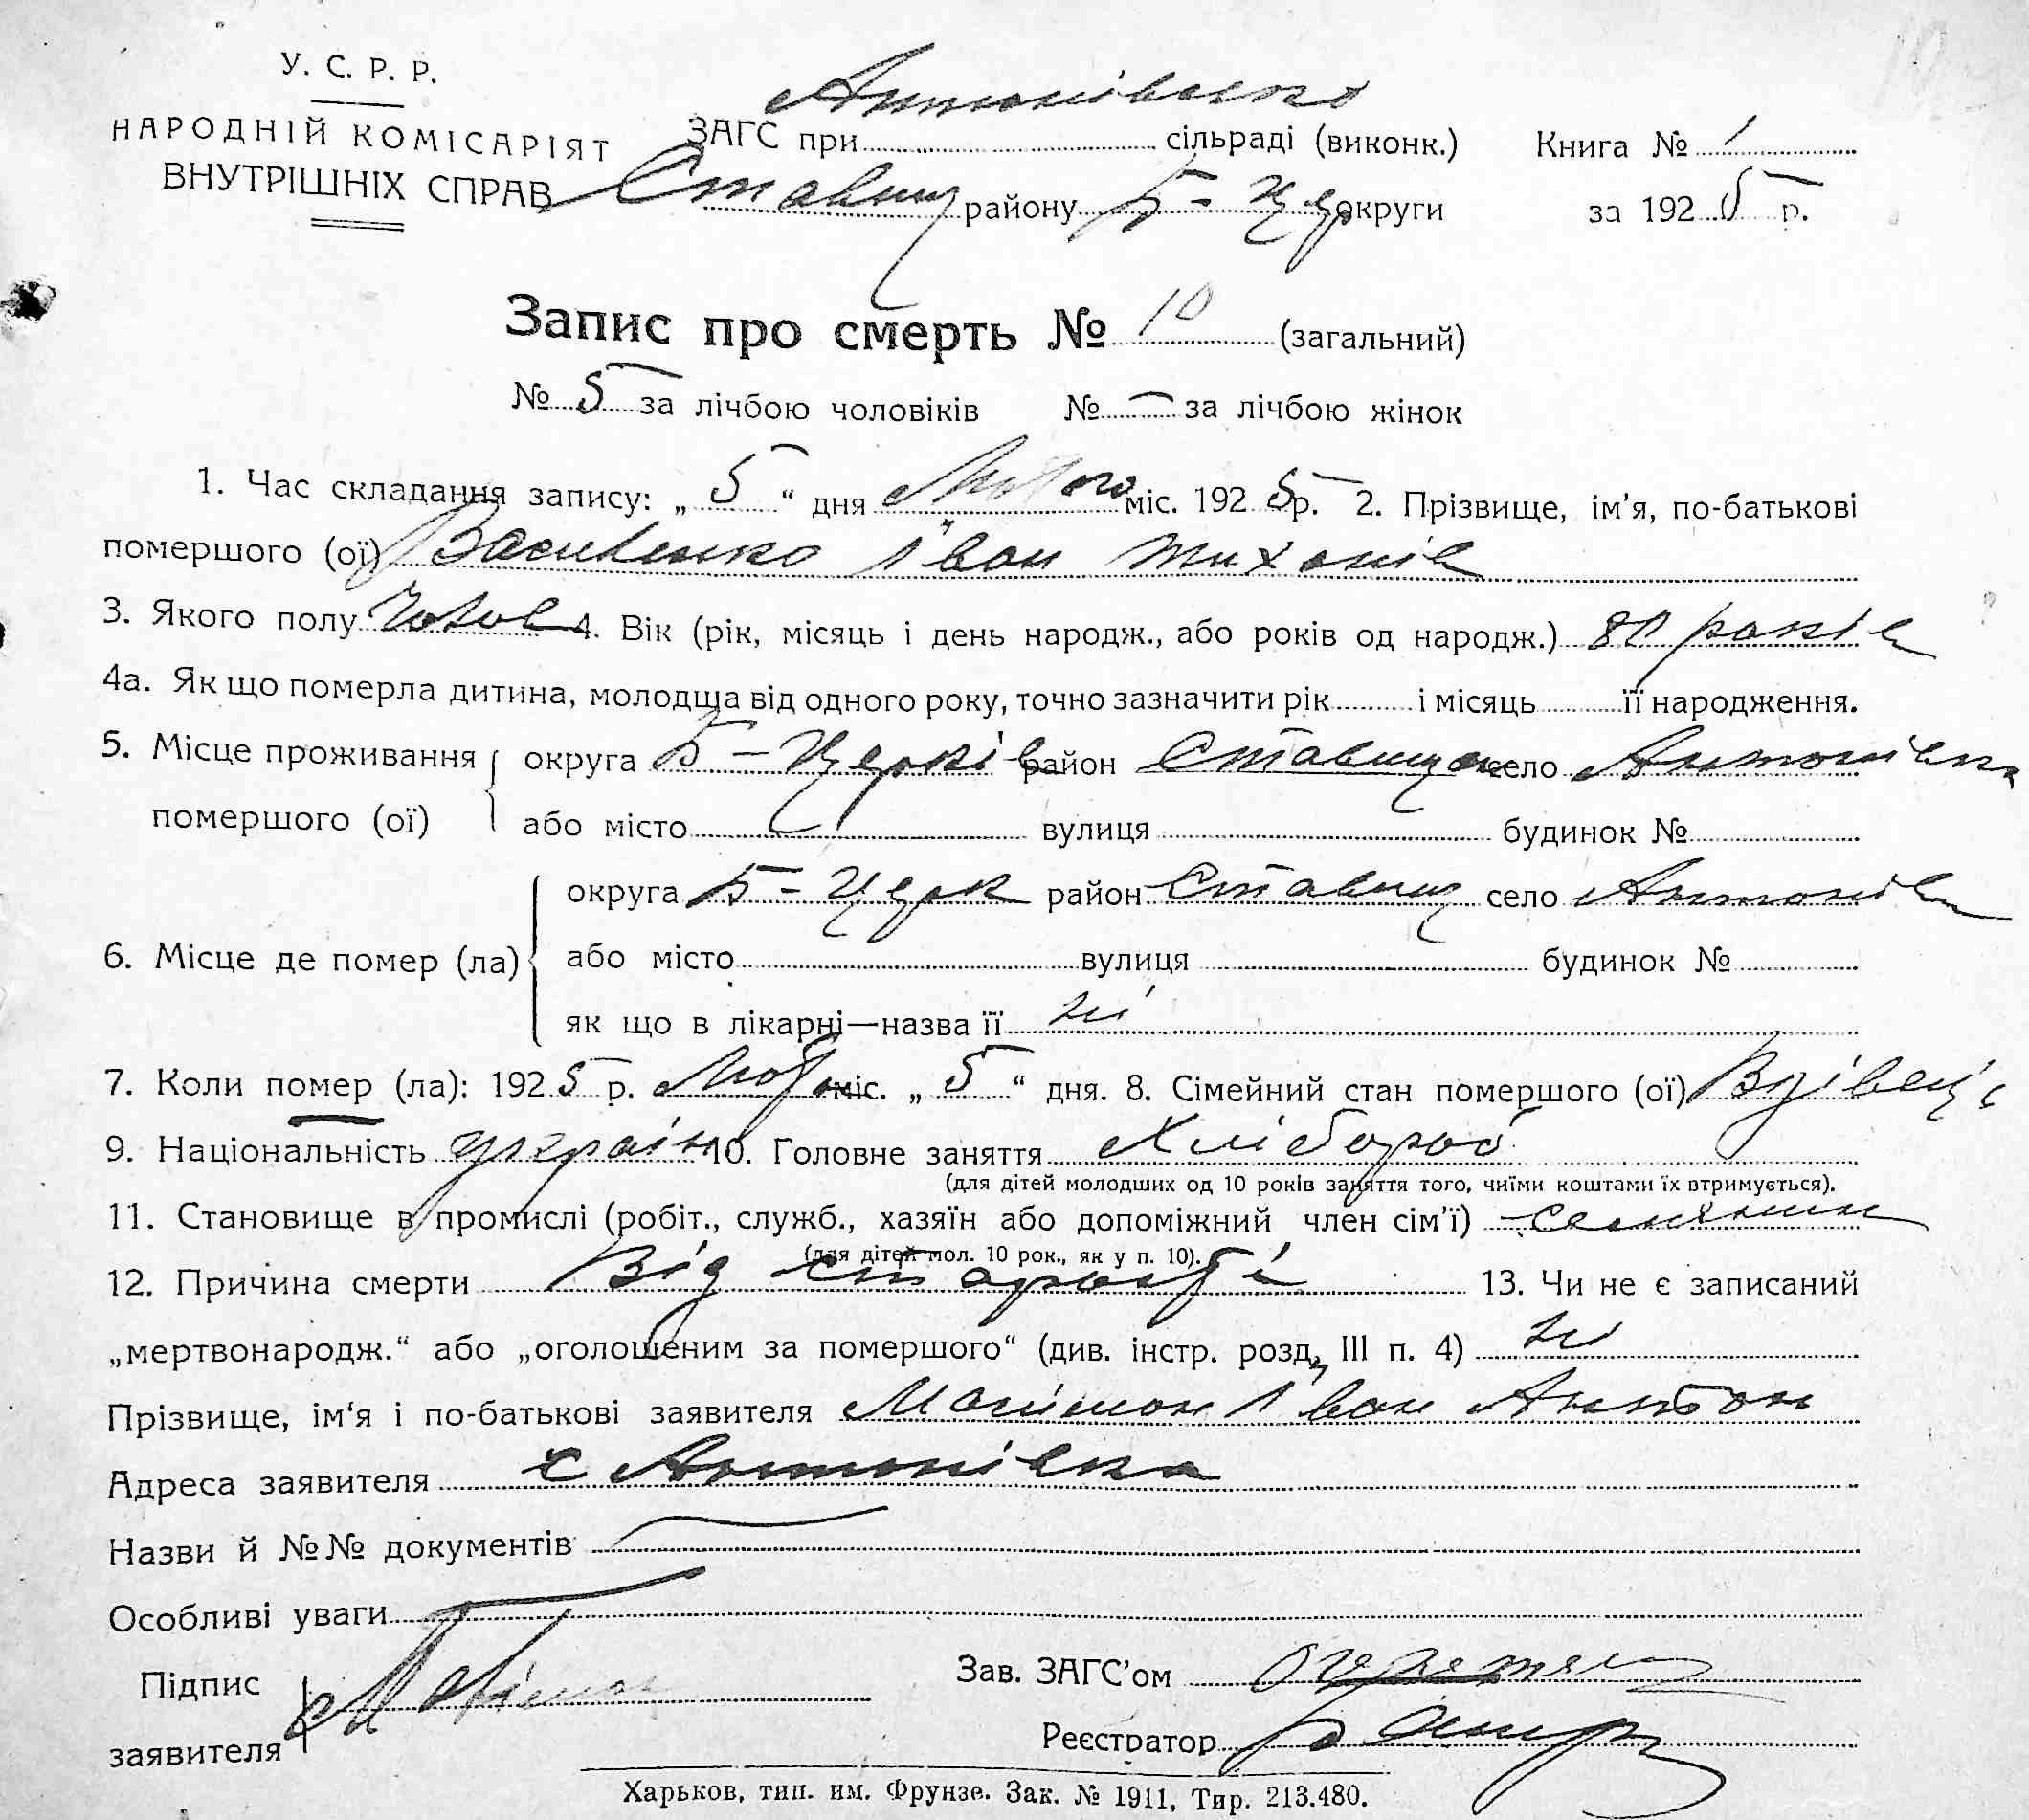 У. С. Р. Р.
НАРОДНІЙ КОМІСАРІЯТ
ВНУТРІШНІХ СПРАВ
Антонівсько
ЗАГС при сільраді (виконк.) Книга № 1
Ставищ району Б-Цер округи за 1925 р.
Запис про смерть № 10 (загальний)
№ 5 за лічбою чоловіків № — за лічбою жінок
1. Час складання запису: „5“ дня Лютого міс. 1925 р. 2. Прізвище, ім'я, по-батькові
помершого (ої) Василенко Іван Тихонів
3. Якого полу Чолов 4. Вік (рік, місяць і день народж., або років од народж.) 80 років
4а. Як що померла дитина, молодща від одного року, точно зазначити рік і місяць її народження.
5. Місце проживання помершого (ої) округа Б-Церків район Ставищан село Антонівка
або місто вулиця будинок №
6. Місце де помер (ла) округа Б-Церк район Ставищ село Антонівк
або місто вулиця будинок №
як що в лікарні—назва її ні
7. Коли помер (ла): 1925 р. Лютого міс. „5“ дня. 8. Сімейний стан помершого (ої) Вдівець
9. Національність україн 10. Головне заняття Хлібороб
(для дітей молодших од 10 років заняття того, чиїми коштами їх втримується).
11. Становище в промислі (робіт., служб., хазяїн або допоміжний член сім'ї) селянин
(для дітей мол. 10 рок., як у п. 10).
12. Причина смерти Від старості 13. Чи не є записаний
„мертвонародж.“ або „оголошеним за помершого“ (див. інстр. розд. III п. 4) ні
Прізвище, ім'я і по-батькові заявителя Іван Антон
Адреса заявителя с Антонівка
Назви й №№ документів —
Особливі уваги —
Підпис заявителя
Зав. ЗАГС'ом
Реєстратор
Харьков, тип. им. Фрунзе. Зак. № 1911, Тир. 213.480.